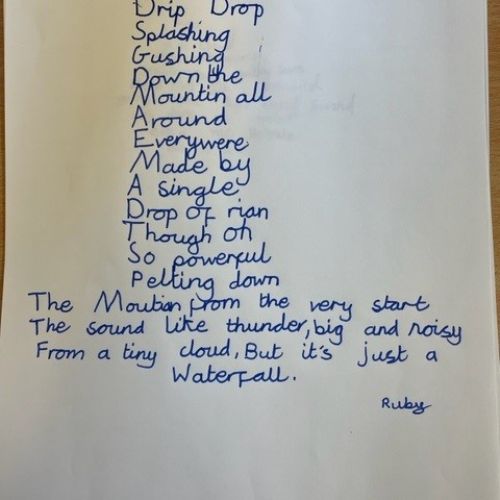 Drip Drop
Splashing
Gushing
Down the
Mountin all
Around
Everywere
Made by
A single
Drop of rian
Though oh
So powerful
Pelting down
The Moutian from the very start
The sound like thunder, big and noisy
From a tiny cloud, But it's just a
Waterfall.
Ruby